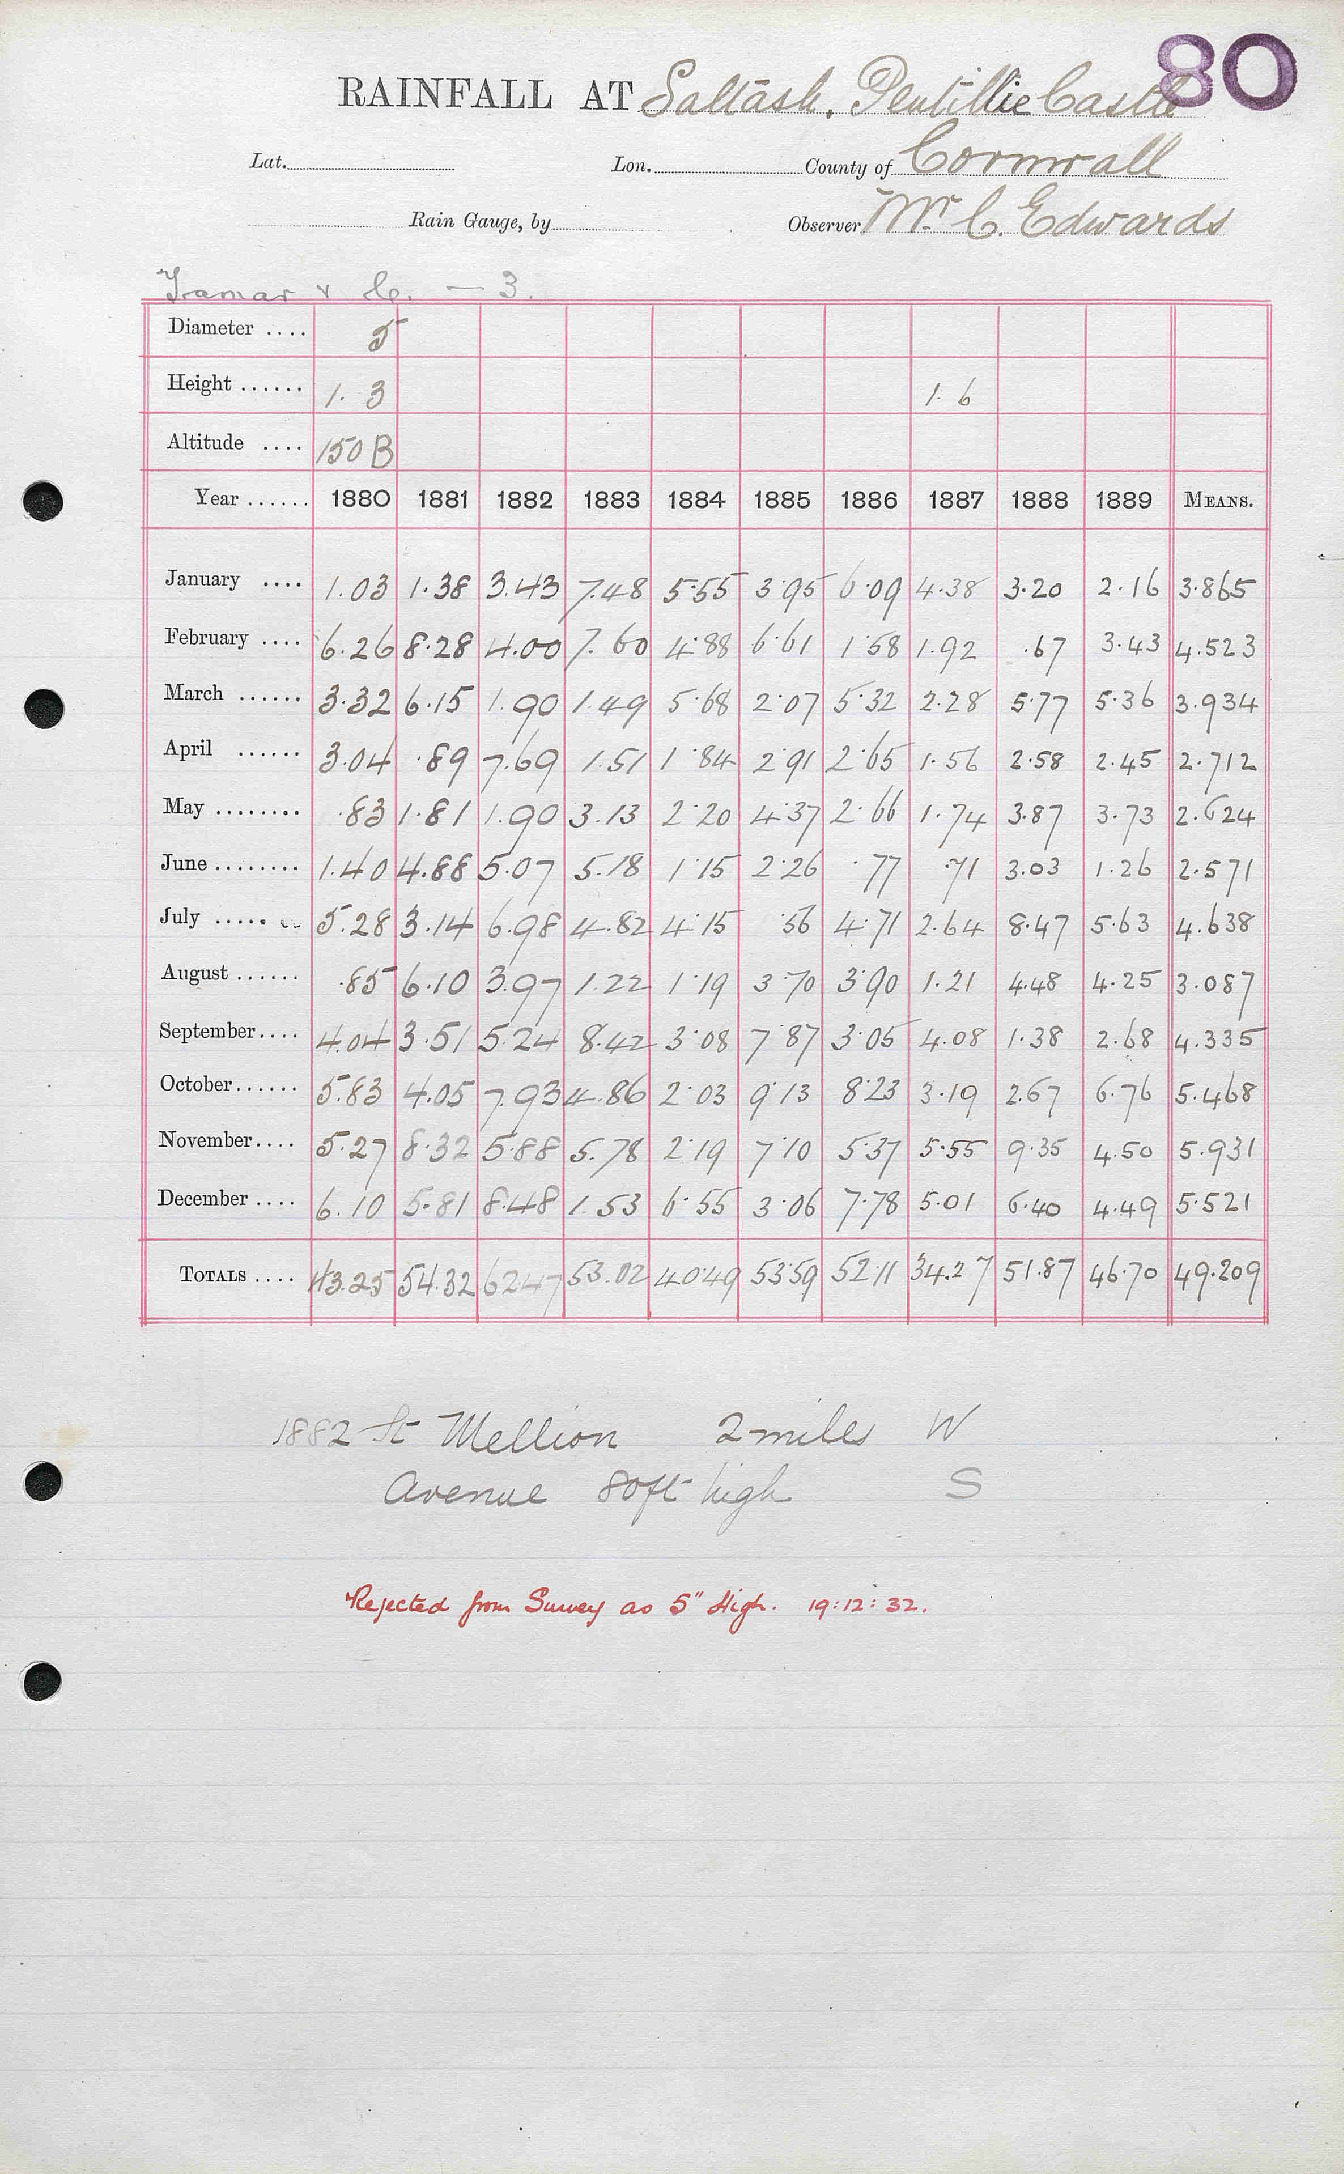 80
RAINFALL AT Saltash, Pentillie Castle
Lat. Lon. County of Cornwall
Rain Gauge, by Observer Mr. C. Edwards
Tamar & &c. — 3.
Diameter .... 5
Height ...... 1. 3 1. 6
Altitude .... 150 B
Year ...... 1880 1881 1882 1883 1884 1885 1886 1887 1888 1889 MEANS.
January .... 1.03 1.38 3.43 7.48 5.55 3.95 6.09 4.38 3.20 2.16 3.865
February .... 6.26 8.28 4.00 7.60 4.88 6.61 1.58 1.92 .67 3.43 4.523
March ...... 3.32 6.15 1.90 1.49 5.68 2.07 5.32 2.28 5.77 5.36 3.934
April ...... 3.04 .89 7.69 1.51 1.84 2.91 2.65 1.56 2.58 2.45 2.712
May ........ .83 1.81 1.90 3.13 2.20 4.37 2.66 1.74 3.87 3.73 2.624
June ........ 1.40 4.88 5.07 5.18 1.15 2.26 .77 .71 3.03 1.26 2.571
July ..... 5.28 3.14 6.98 4.82 4.15 .56 4.71 2.64 8.47 5.63 4.638
August ...... .85 6.10 3.97 1.22 1.19 3.70 3.90 1.21 4.48 4.25 3.087
September.... 4.04 3.51 5.24 8.42 3.08 7.87 3.05 4.08 1.38 2.68 4.335
October...... 5.83 4.05 7.93 4.86 2.03 9.13 8.23 3.19 2.67 6.76 5.468
November.... 5.27 8.32 5.88 5.78 2.19 7.10 5.37 5.55 9.35 4.50 5.931
December .... 6.10 5.81 8.48 1.53 6.55 3.06 7.78 5.01 6.40 4.49 5.521
TOTALS .... 43.25 54.32 62.47 53.02 40.49 53.59 52.11 34.27 51.87 46.70 49.209
1882 St Mellion 2 miles W
Avenue 80ft high S
Rejected from Survey as 5" High. 19:12:32.